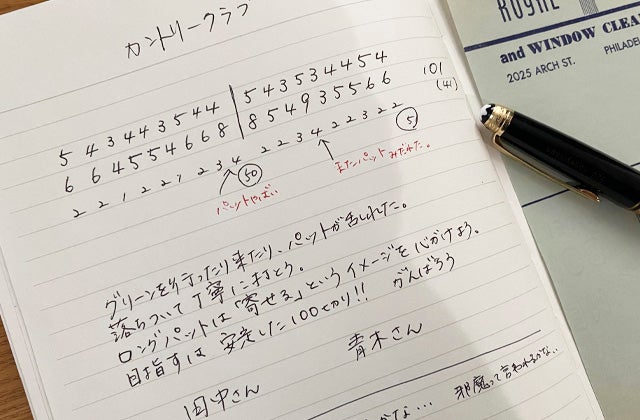 カントリークラブ
5 4 3 4 4 3 5 4 4 | 5 4 3 5 3 4 4 5 4
6 6 4 5 5 4 6 6 8 | 8 5 4 9 3 5 5 6 6 101
2 2 1 2 2 1 2 3 4 2 2 3 4 2 2 3 2 2 (41)
50
パットやばい
またパットみだれた。
グリーンを行ったり来たり、パットが乱れた。
落ちついて丁寧に打とう。
ロングパットは「寄せる」というイメージを心がけよう。
目指すは安定した100切り!! がんばろう
田中さん 青木さん
かな…
邪魔って言われるかな..
ROYAL
and WINDOW CLEA
2025 ARCH ST. PHILADE